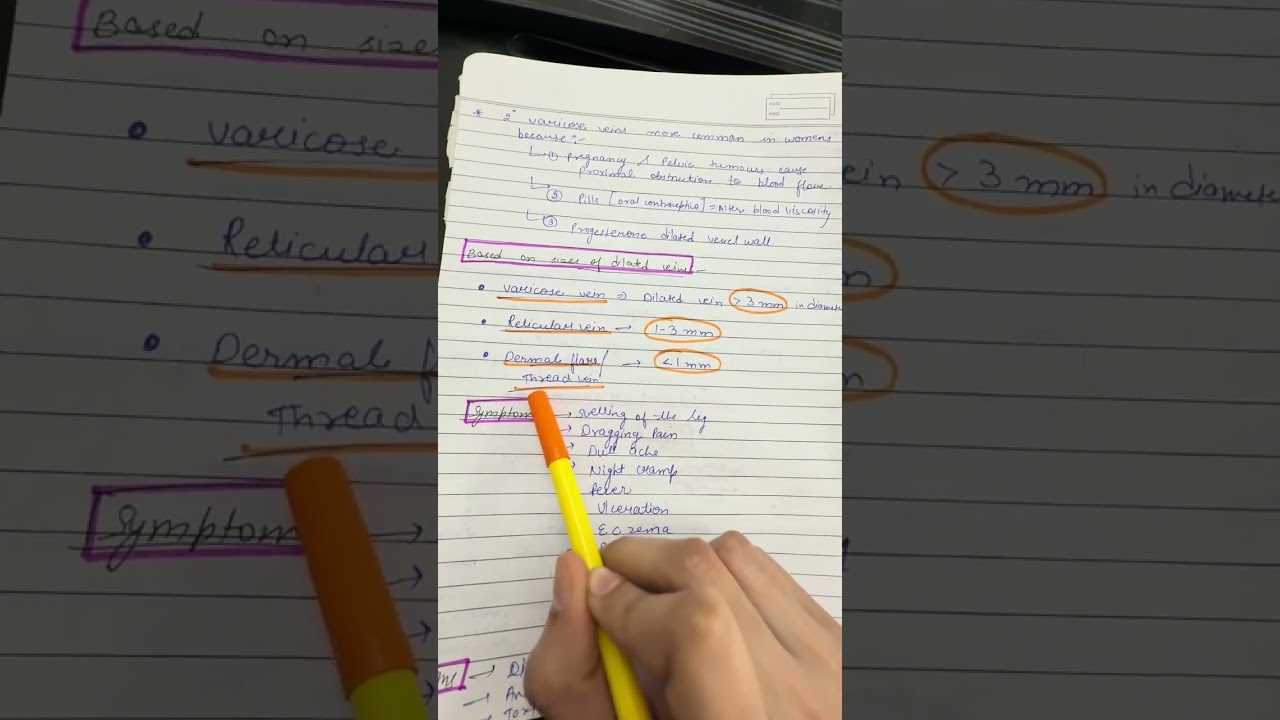 * 2° varicose veins more common in womens
because :-
① Pregnancy & Pelvic tumours cause
proximal obstruction to blood flow
② Pills [oral contraceptive] = Alter blood viscosity
③ Progesterone dilated vessel wall
Based on sizes of dilated veins -
• Varicose vein ⇒ Dilated vein >3 mm in diamete
• Reticular vein → 1-3 mm
• Dermal flare/ → <1 mm
Thread vein
Symptom → Swelling of the leg
→ Dragging Pain
→ Dull ache
→ Night cramp
Fever
Ulceration
Eczema